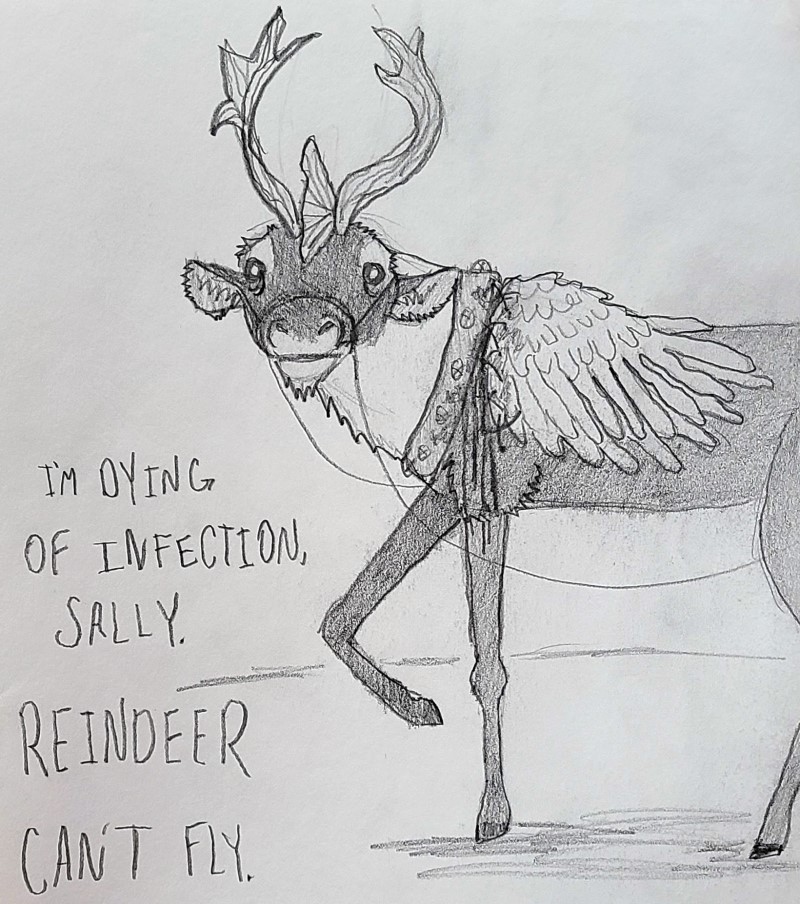 I'M DYING
OF INFECTION,
SALLY.
REINDEER
CAN'T FLY.